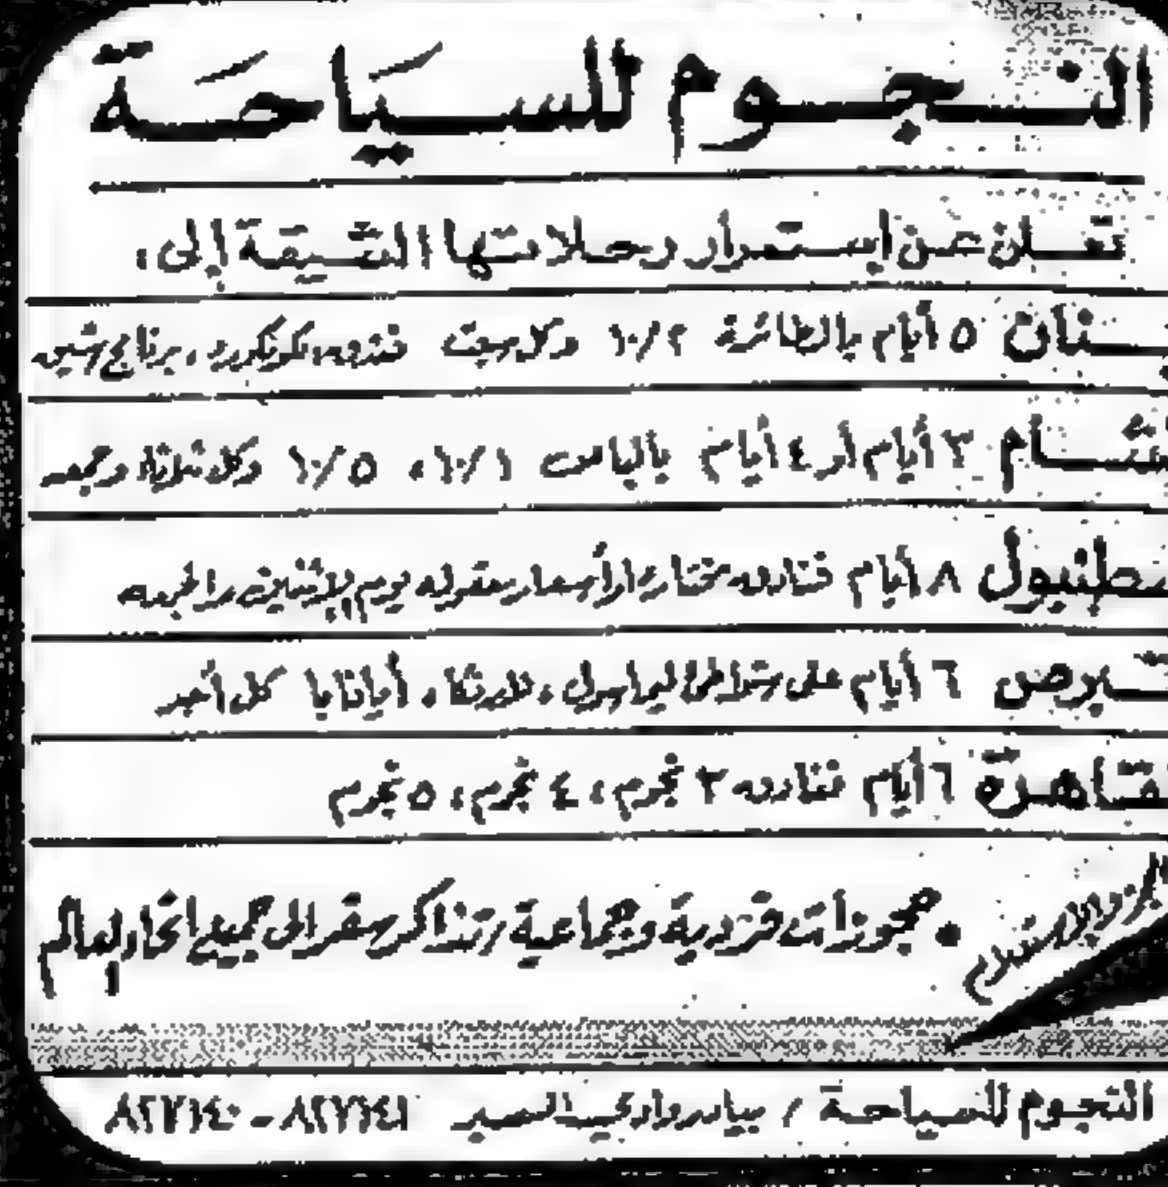 النجوم للسياحة
تعلن عن إستمرار رحلاتها الشيقة إلى:
لبنان ٥ أيام بالطائرة ١٠/٢ وكل سبت فندق كونكورد، برنامج شيق
الشام ٣ أيام أو ٤ أيام بالباص ١٠/١، ١٠/٥ وكل ثلاثاء وجمعه
اسطنبول ٨ أيام فنادق مختاره أسعار معقوله يوم الاثنين والجمعه
قبرص ٦ أيام على شواطئ ليماسول، لارنكا، أيانابا كل أحد
القاهرة ٦ أيام فنادق ٣ نجوم، ٤ نجوم، ٥ نجوم
• حجوزات فردية وجماعية وتذاكر سفر الى جميع انحاء العالم
النجوم للسياحة / وادي السير ٨٢٧١٤١ - ٨٢٧١٤٠